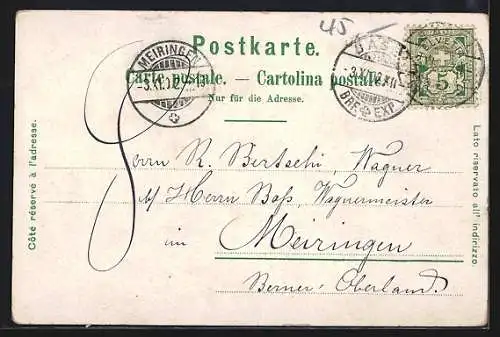 45
Postkarte.
Carte postale. — Cartolina postale.
Nur für die Adresse.
MEIRINGEN
-3.XI.02.
BAS
-3.XI.02.XII
BRF EXP
5
Herrn R. Bertschi, Wagner
b/ Herrn Boss, Wagnermeister
im Meiringen
Berner Oberland.
Côté réservé à l'adresse.
Lato riservato all' indirizzo.